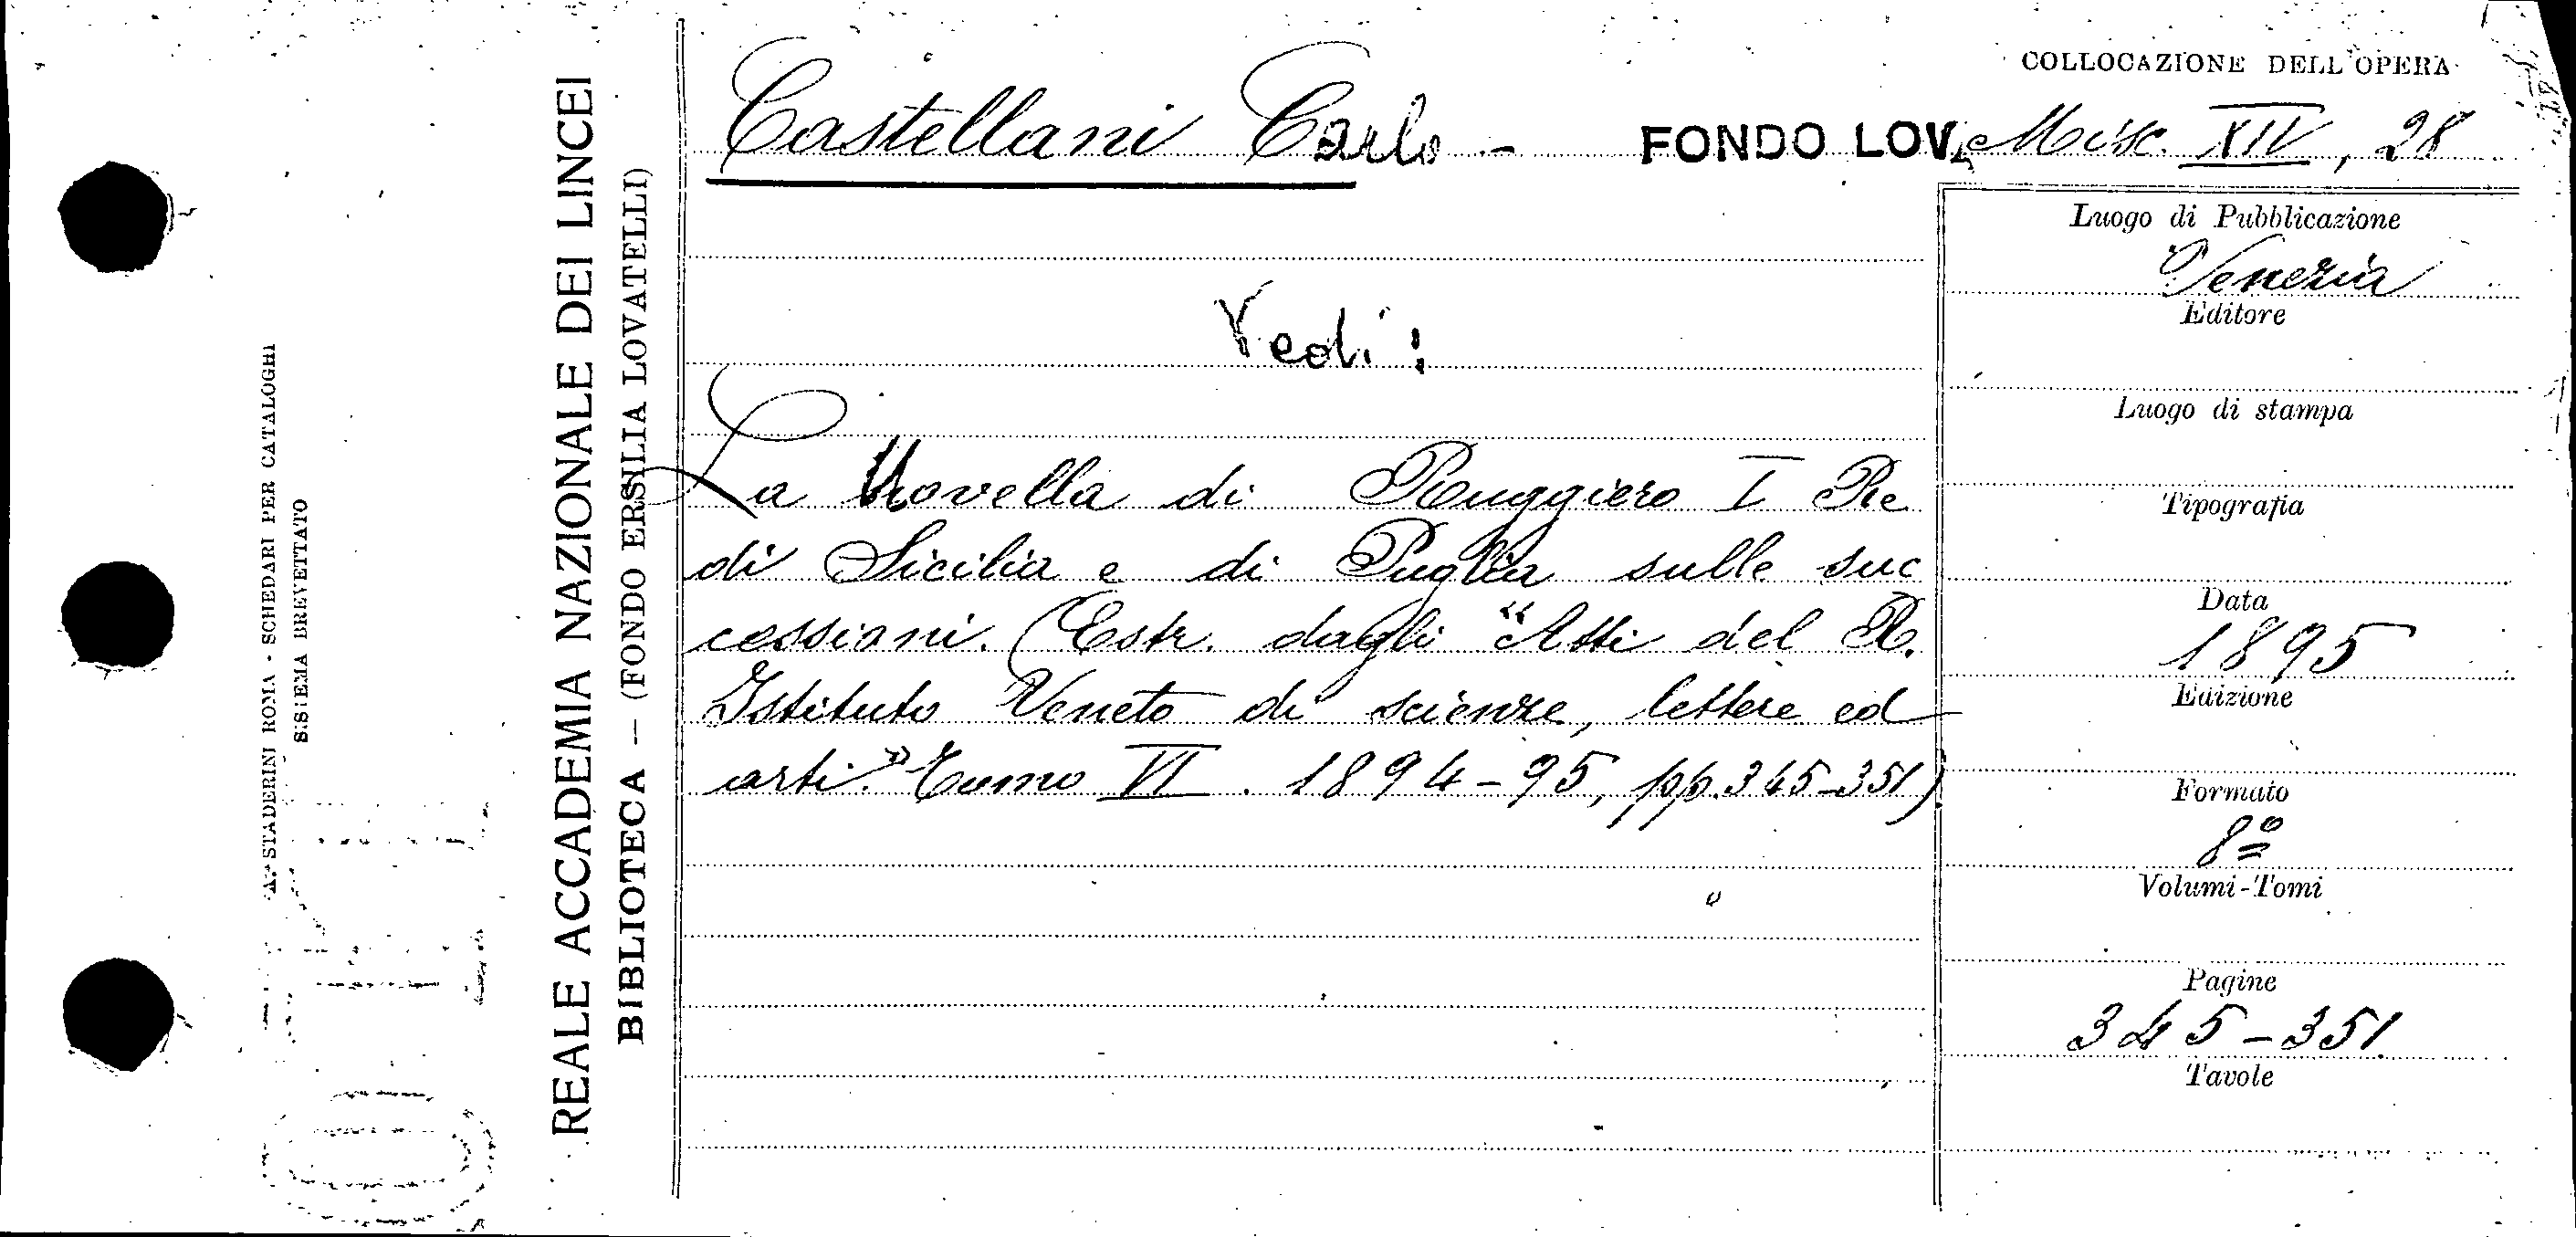 COLLOCAZIONE DELL'OPERA
Castellani Carlo - FONDO LOV. Misc. XIV, 28
Vedi:
La Novella di Ruggiero I Re
di Sicilia e di Puglia sulle suc
cessioni. (Estr. dagli "Atti del R.
Istituto Veneto di scienze, lettere ed
arti." Tomo VI. 1894-95, pp. 345-351)
Luogo di Pubblicazione
Venezia
Editore
Luogo di stampa
Tipografia
Data
1895
Edizione
Formato
8º
Volumi-Tomi
Pagine
345-351
Tavole
REALE ACCADEMIA NAZIONALE DEI LINCEI
BIBLIOTECA — (FONDO ERSILIA LOVATELLI)
STADERINI ROMA - SCHEDARI PER CATALOGHI
SISTEMA BREVETTATO